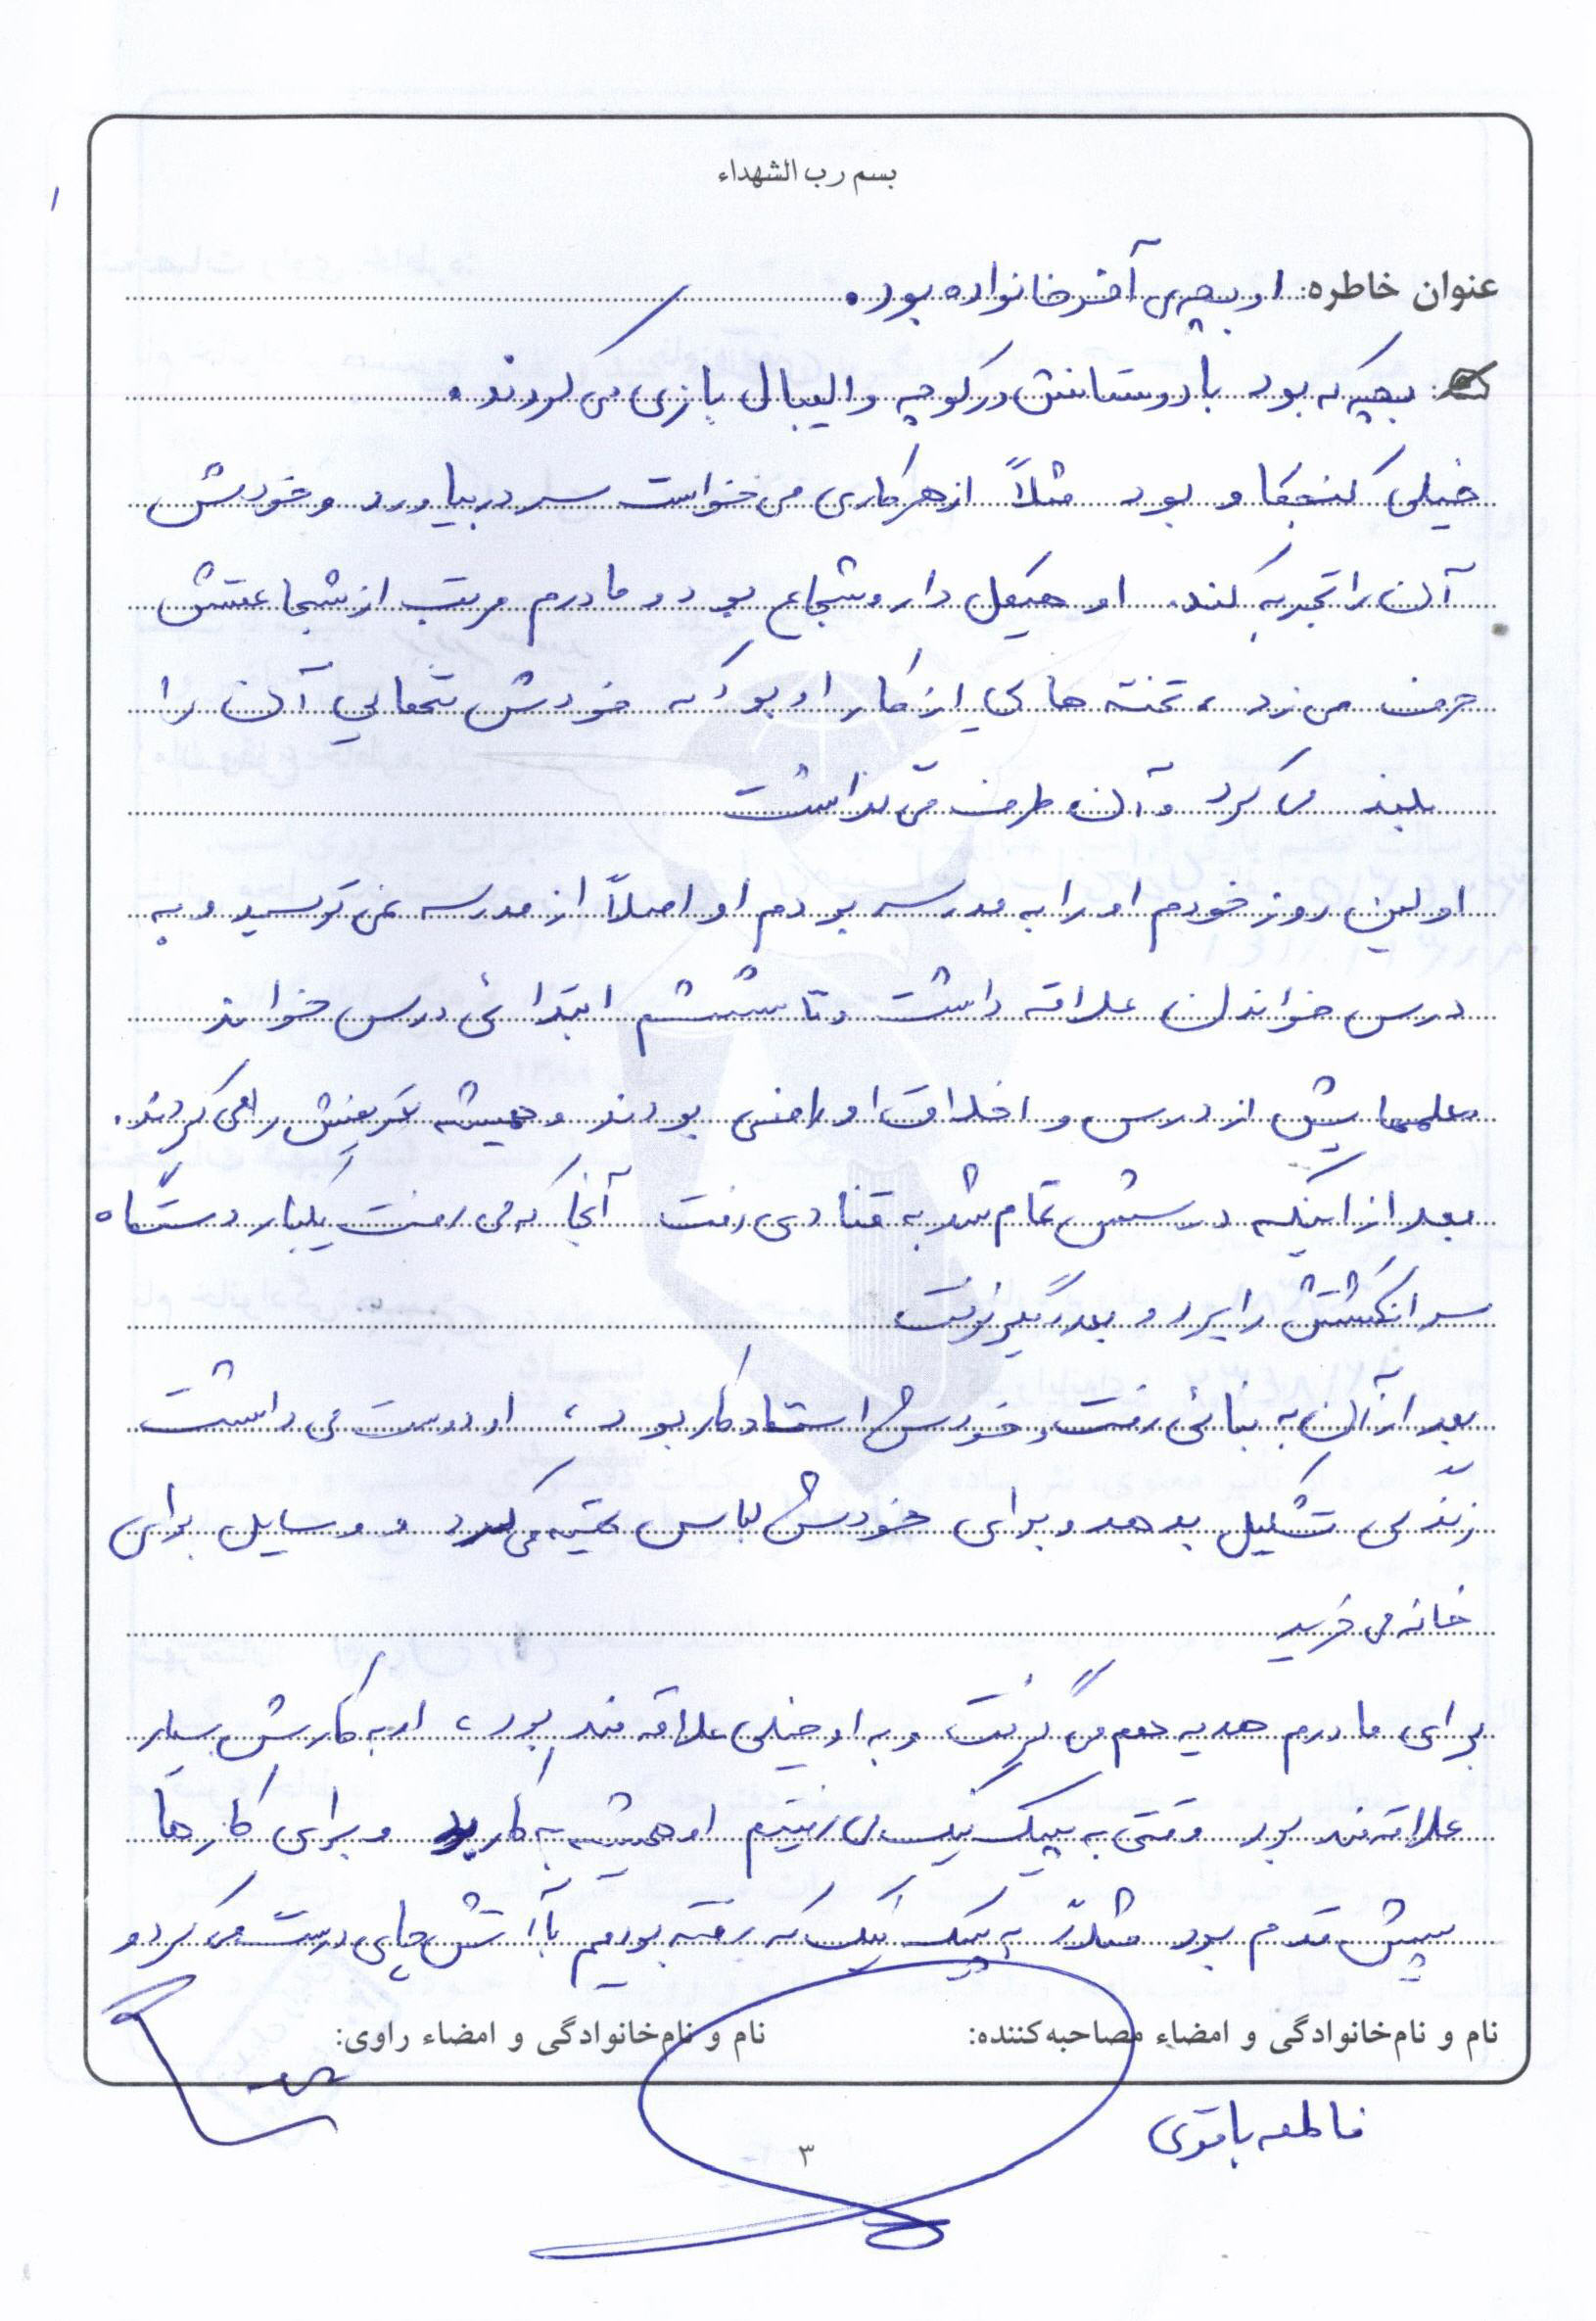 بسم رب الشهداء
۱
عنوان خاطره: او بچه‌ی آخر خانواده بود.
بچه که بود با دوستانش در کوچه والیبال بازی می کردند.
خیلی کنجکاو بود مثلاً از هر کاری می خواست سر در بیاورد و خودش
آن را تجربه کند. او هیکل دار و شجاع بود و مادرم مرتب از شجاعتش
حرف می زد، تخته هایی از کار او بود که خودش تنهایی آن را
بلند می کرد و آن طرف می گذاشت
اولین روز خودم او را به مدرسه بردم او اصلاً از مدرسه نمی ترسید و به
درس خواندن علاقه داشت و تا ششم ابتدائی درس خواند
معلمهایش از درس و اخلاق او راضی بودند و همیشه تعریفش را می کردند.
بعد از اینکه درسش تمام شد به قنادی رفت آنجا که می رفت یکبار دستگاه
سر انگشتش را برد و بعد دیگر نرفت
بعد از آن به بنائی رفت و خودش استاد کار بود، او دوست می داشت
زندگی تشکیل بدهد و برای خودش لباس تهیه می کرد و وسایل برای
خانه می خرید
برای مادرم هدیه هم می گرفت و به او خیلی علاقه مند بود، او به کارش بسیار
علاقه مند بود وقتی به پیک نیک می رفتیم او همیشه به کار بود و برای کارها
پیش قدم بود مثلاً به پیک نیک که رفته بودیم با آتش چای درست می کرد و
نام و نام‌خانوادگی و امضاء مصاحبه‌کننده:
نام و نام‌خانوادگی و امضاء راوی:
فاطمه یاقوتی
۳